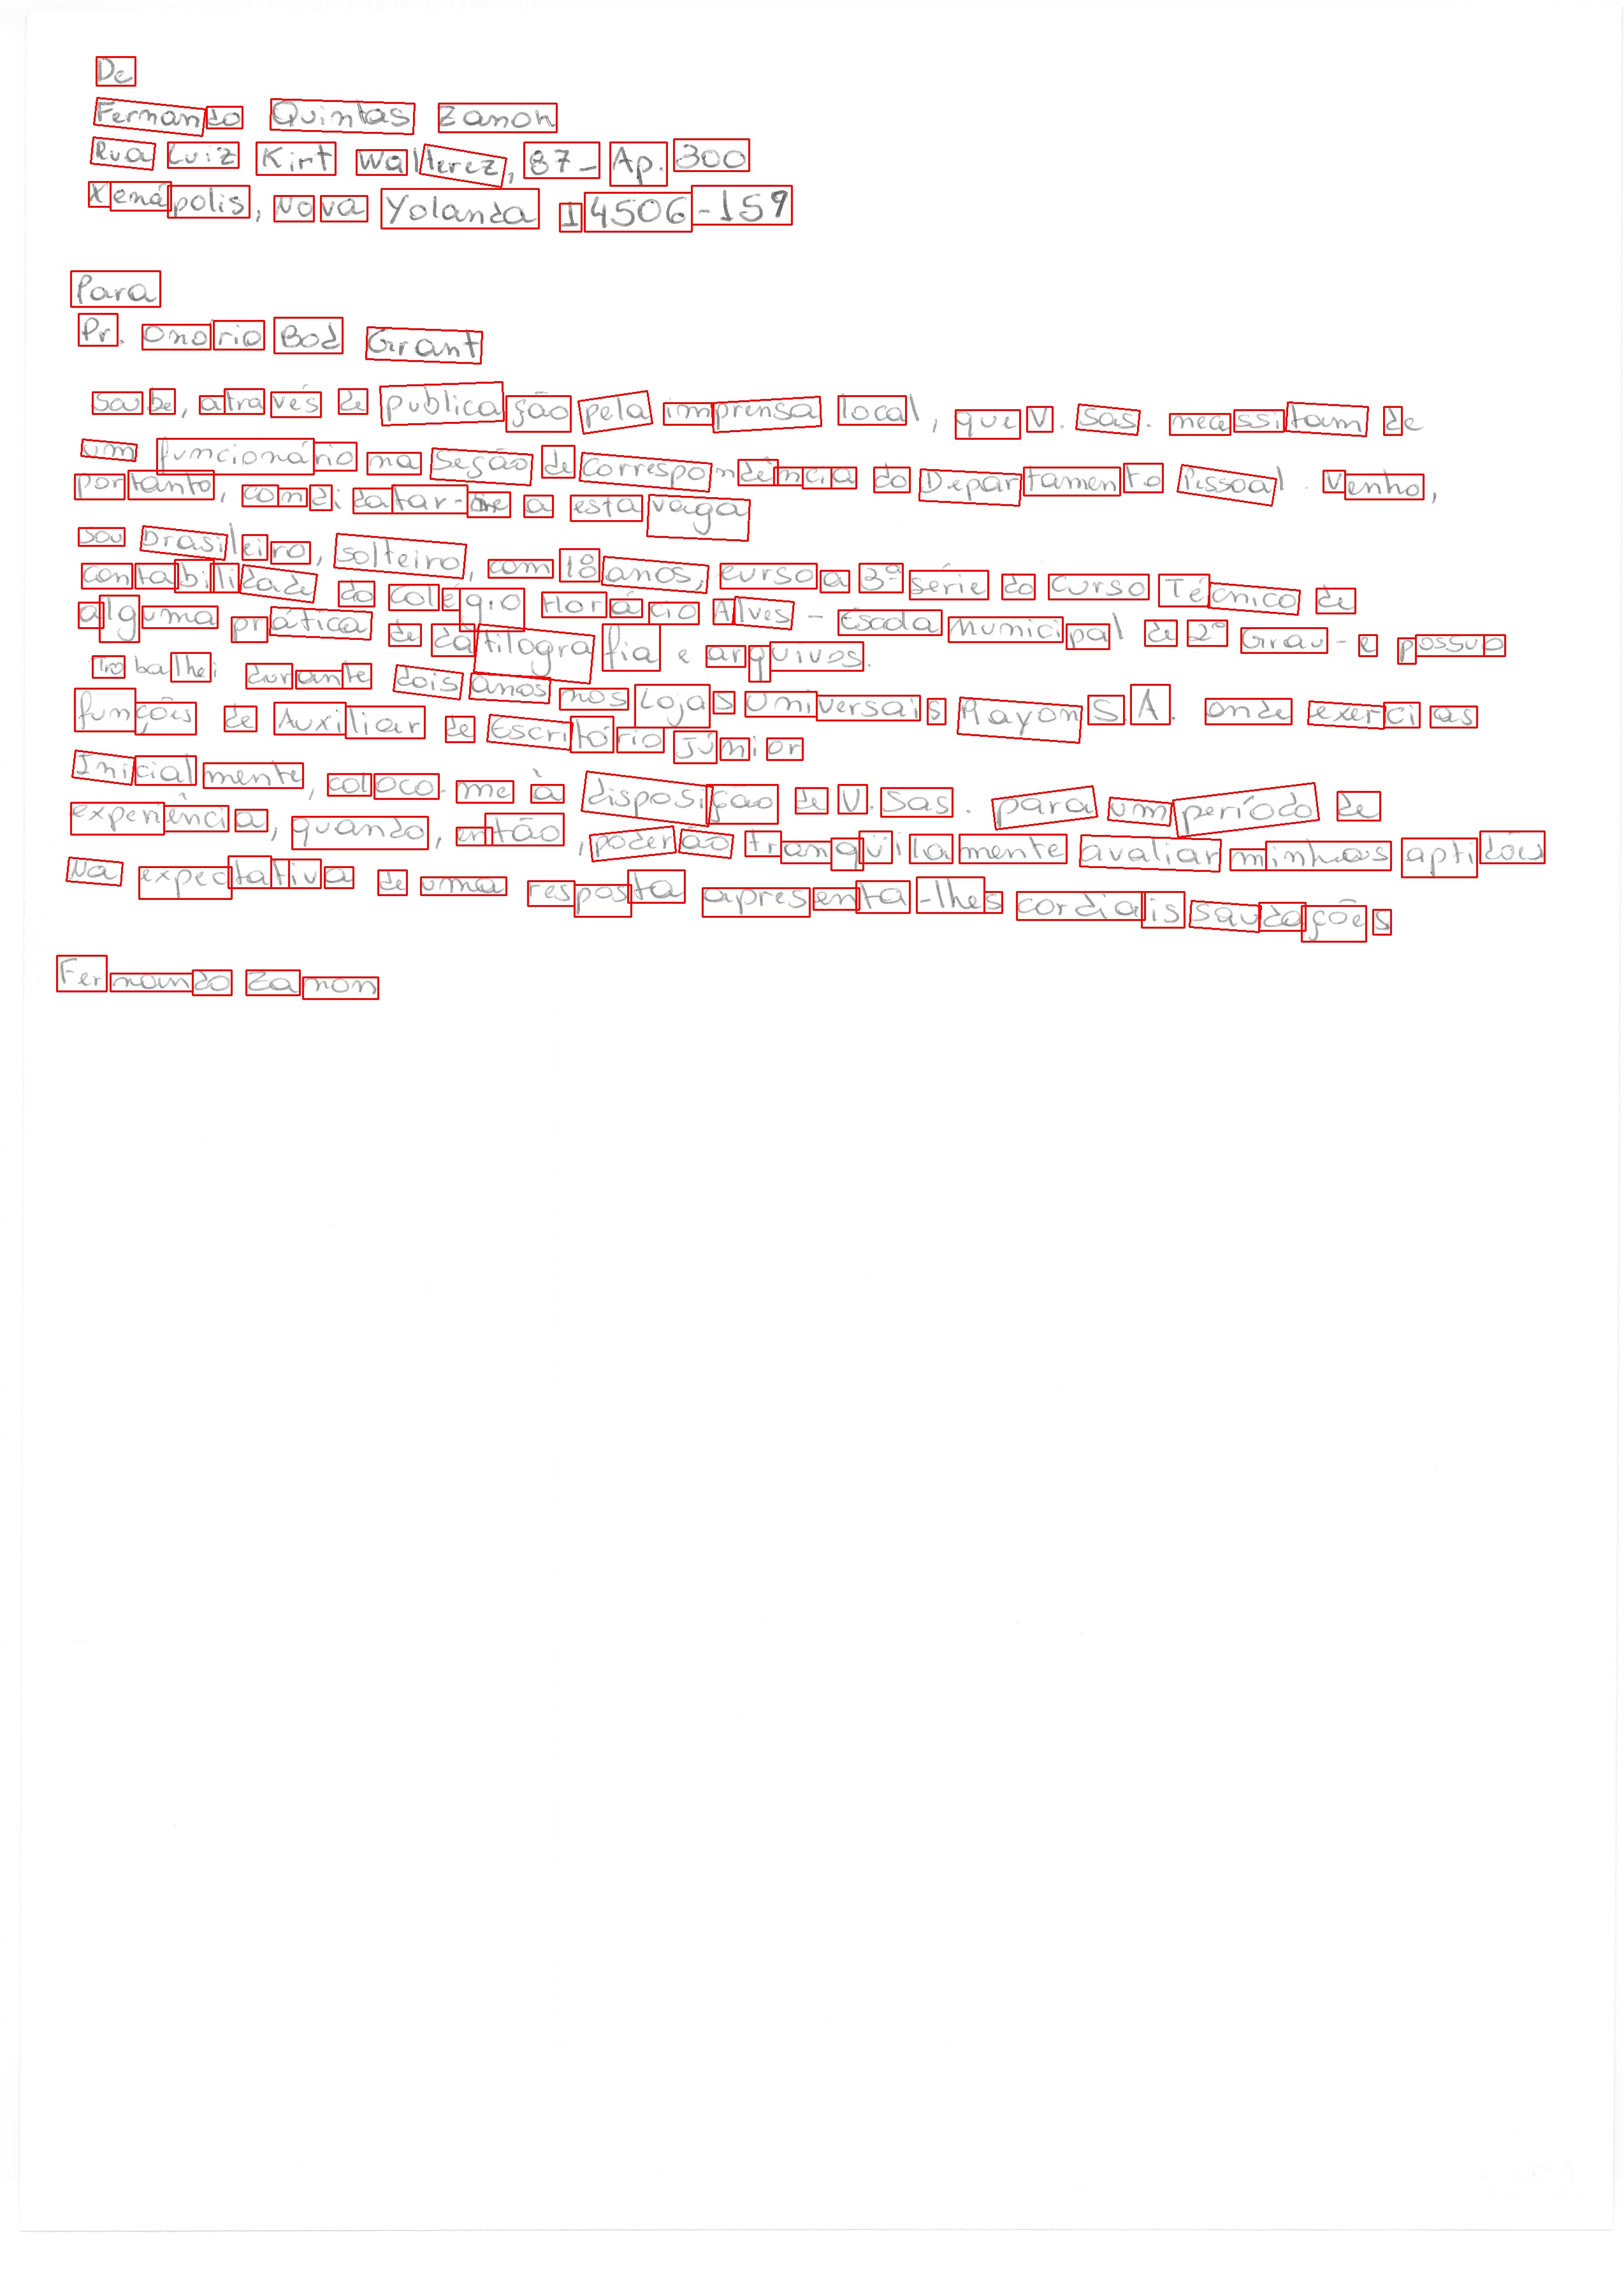 De
Fernando Quintas Zanon
Rua Luiz Kirt Walterez, 87 - Ap. 300
Xenápolis, Nova Yolanda 14506-159
Para
Pr. Onório Bod Grant
Soube, através de publicação pela imprensa local, que V. Sas. necessitam de
um funcionário na Seção de Correspondência do Departamento Pessoal. Venho,
portanto, candidatar-me a esta vaga
sou brasileiro, solteiro, com 18 anos, curso a 3ª série do Curso Técnico de
contabilidade do colégio Horácio Alves - Escola Municipal de 2º Grau - e possuo
alguma prática de datilografia e arquivos.
Trabalhei durante dois anos nos Lojas Universais Mayon S.A. onde exerci as
funções de Auxiliar de Escritório Júnior
Inicialmente, coloco-me à disposição de V. Sas. para um período de
experiência, quando, então, poderão tranqüilamente avaliar minhas aptidões
Na expectativa de uma resposta apresenta-lhes cordiais saudações
Fernando Zanon